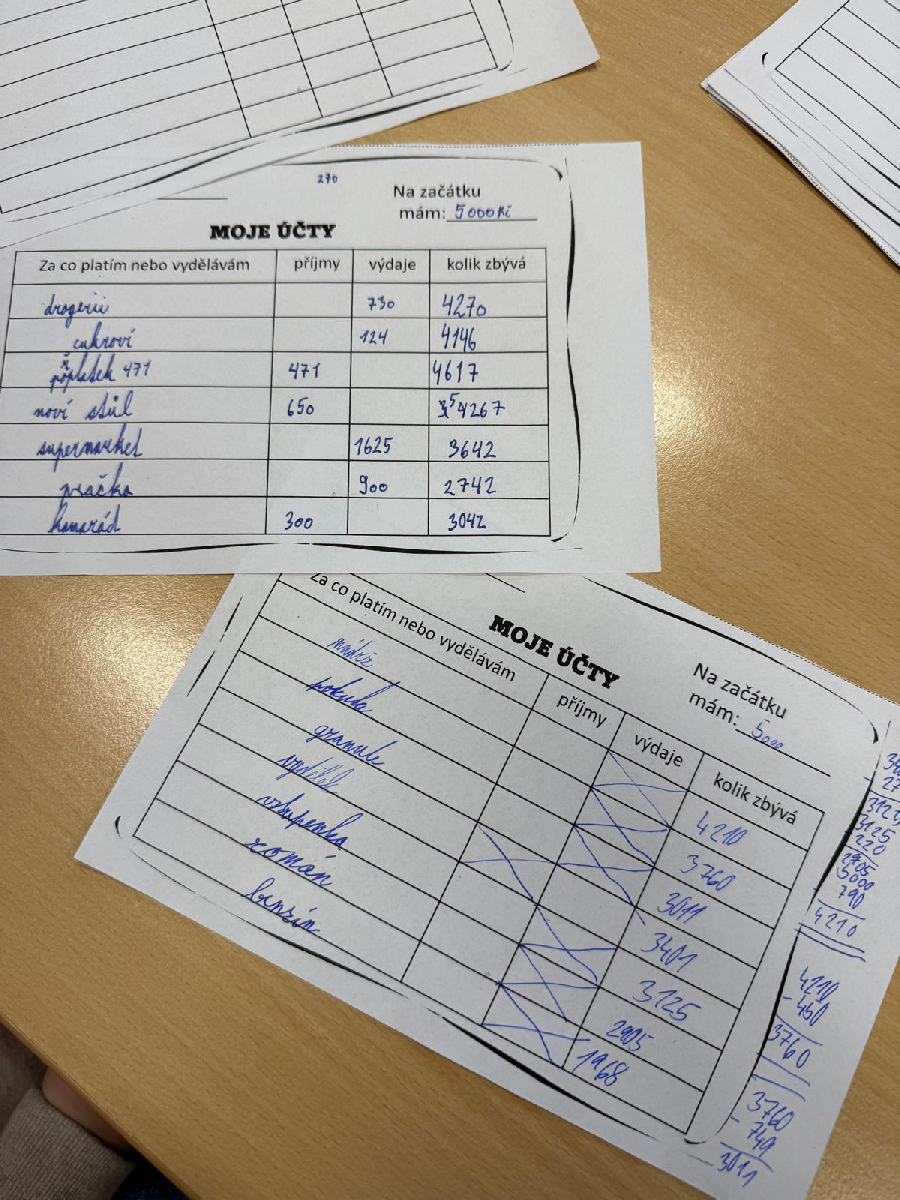 270
Na začátku
mám: 5000Kč
MOJE ÚČTY
Za co platím nebo vydělávám příjmy výdaje kolik zbývá
drogerii 730 4270
cukroví 124 4146
471 471 4617
noví stůl 650 4267
supermarket 1625 3642
pračka 900 2742
kamarád 300 3042
Na začátku
mám: 5000
MOJE ÚČTY
Za co platím nebo vydělávám příjmy výdaje kolik zbývá
nádrž 4210
pokuta 3760
granule 3011
vydělal 3401
vstupenka 3125
román 2905
benzín 1968
3125
220
2905
5000
790
4210
4210
-450
3760
3760
- 749
3011